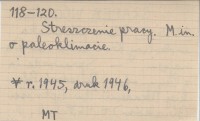 118-120.
Streszczenie pracy. M. in.
o paleoklimacie.
r. 1945, druk 1946,
MT